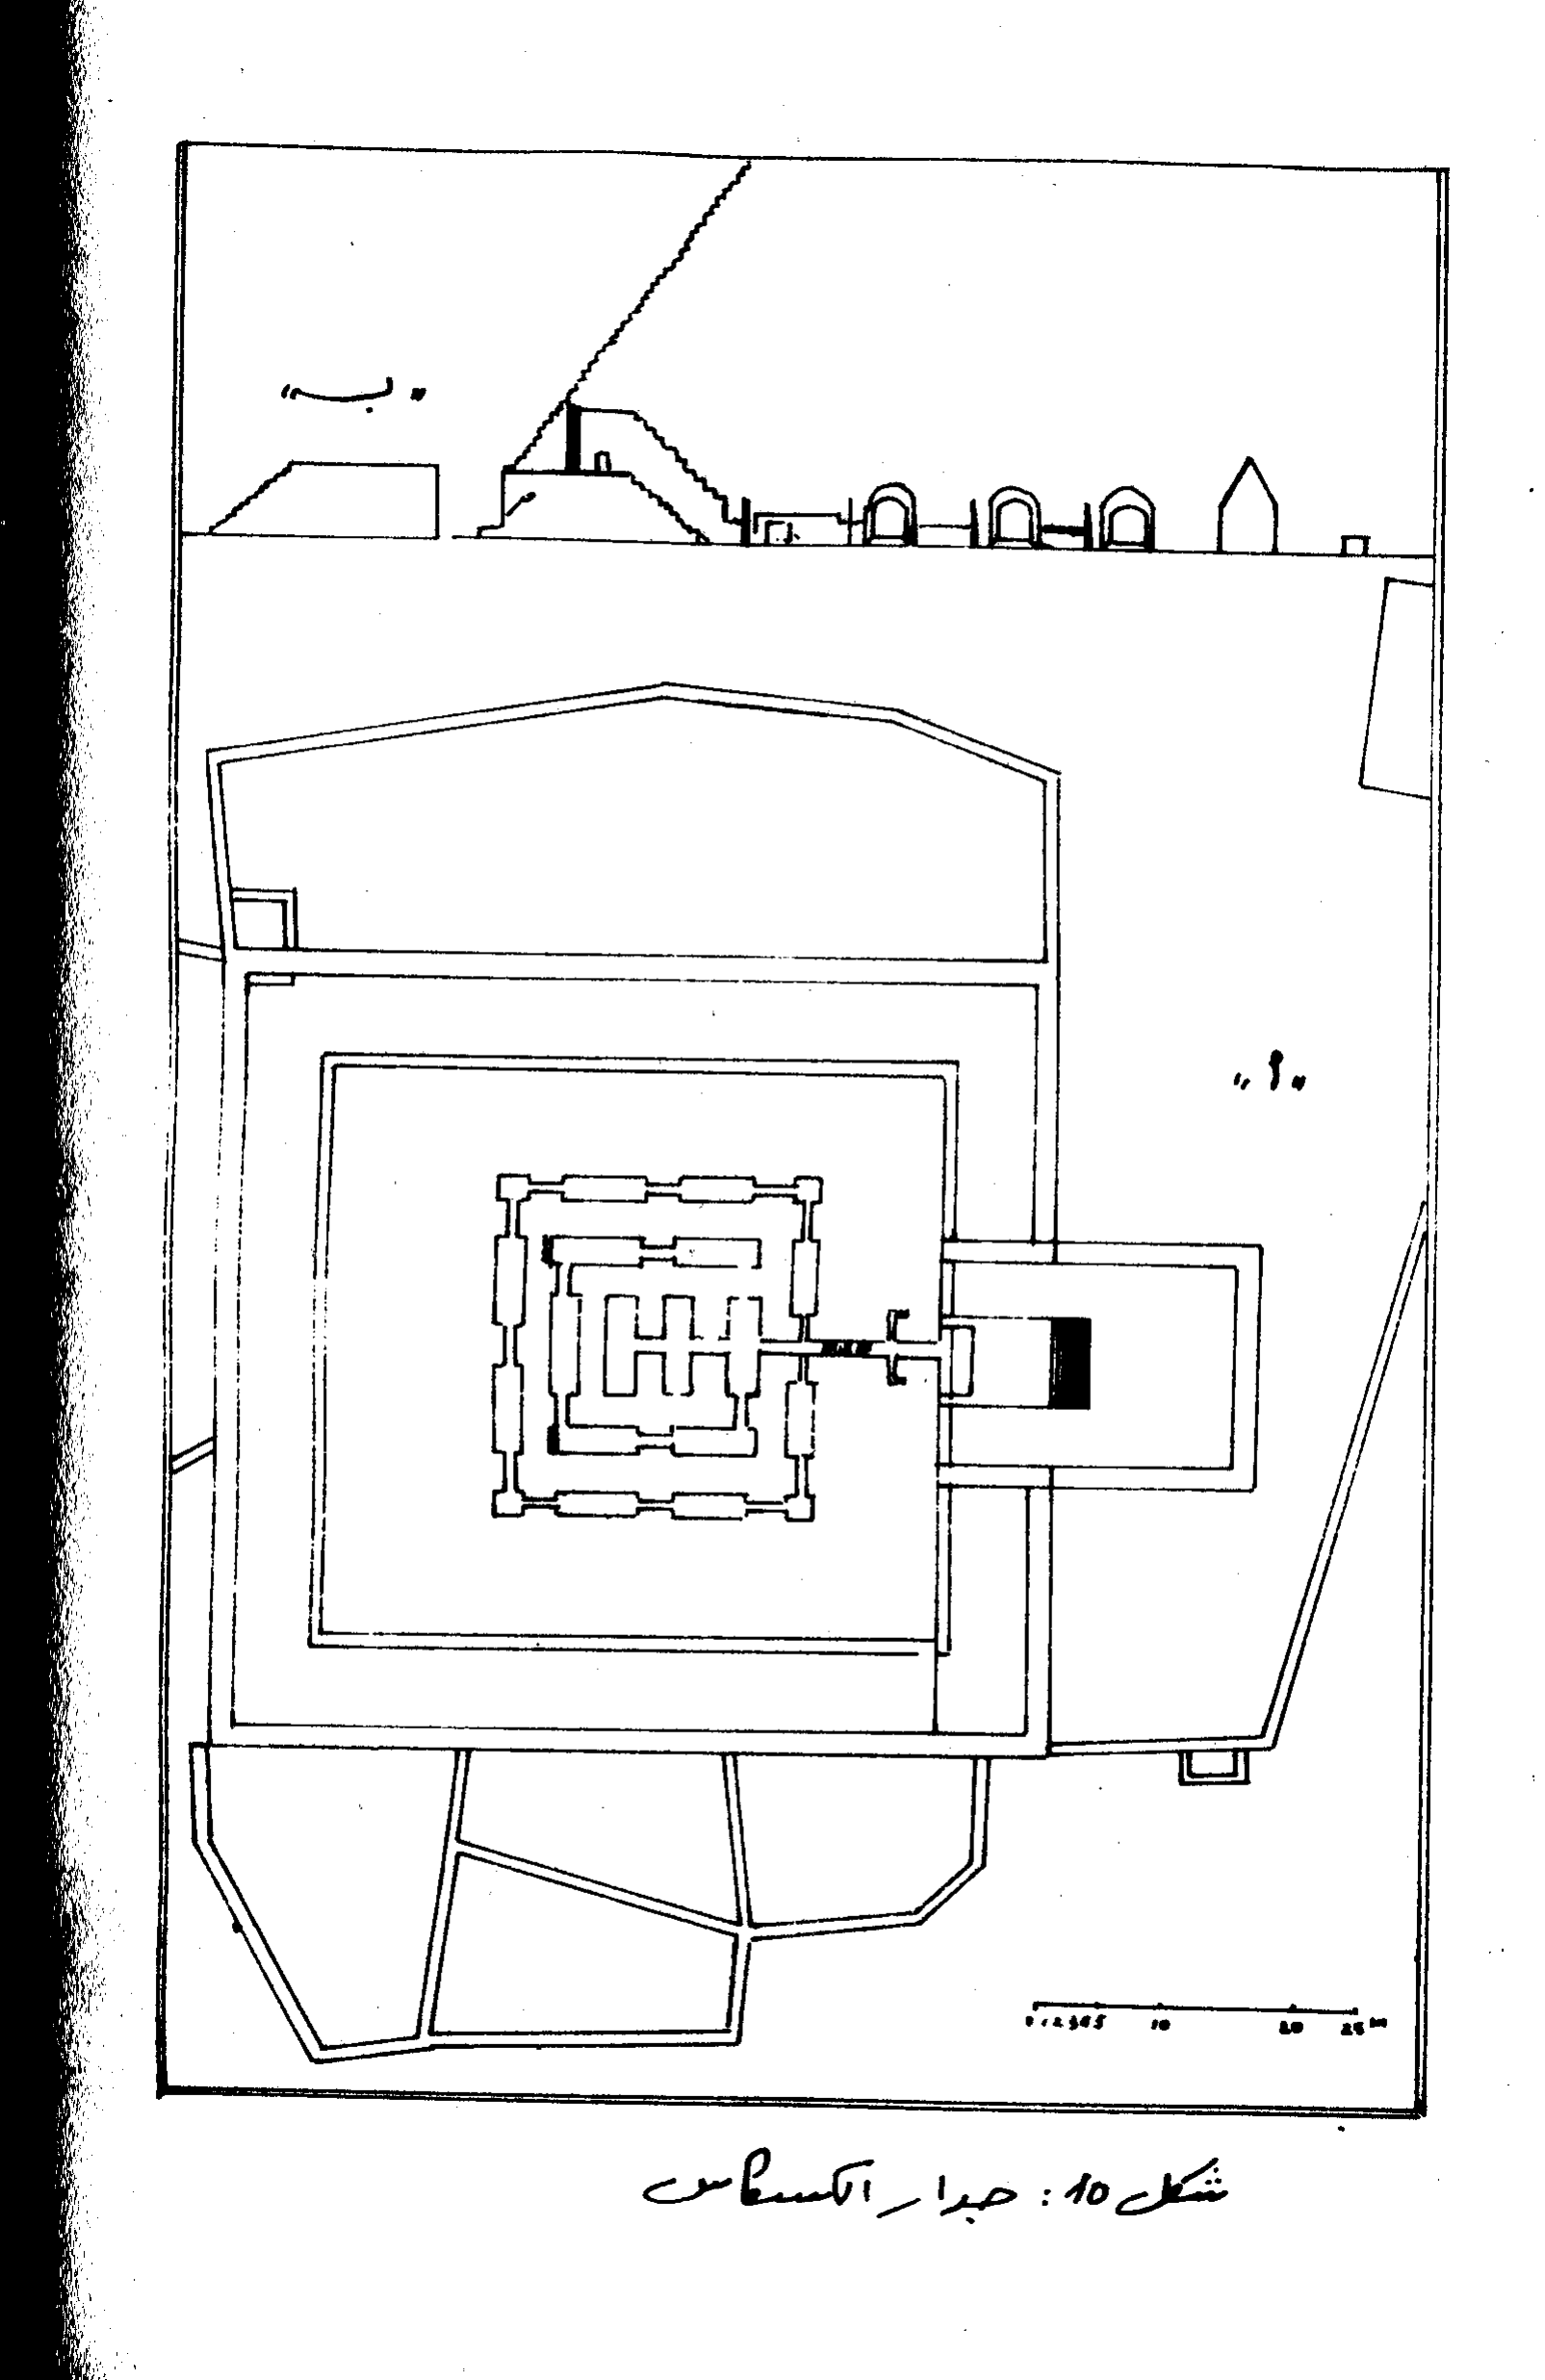 "ب"
"أ"
0 1 2 3 4 5 10 20 25 m
شكل 10 : جدار الكسكاس